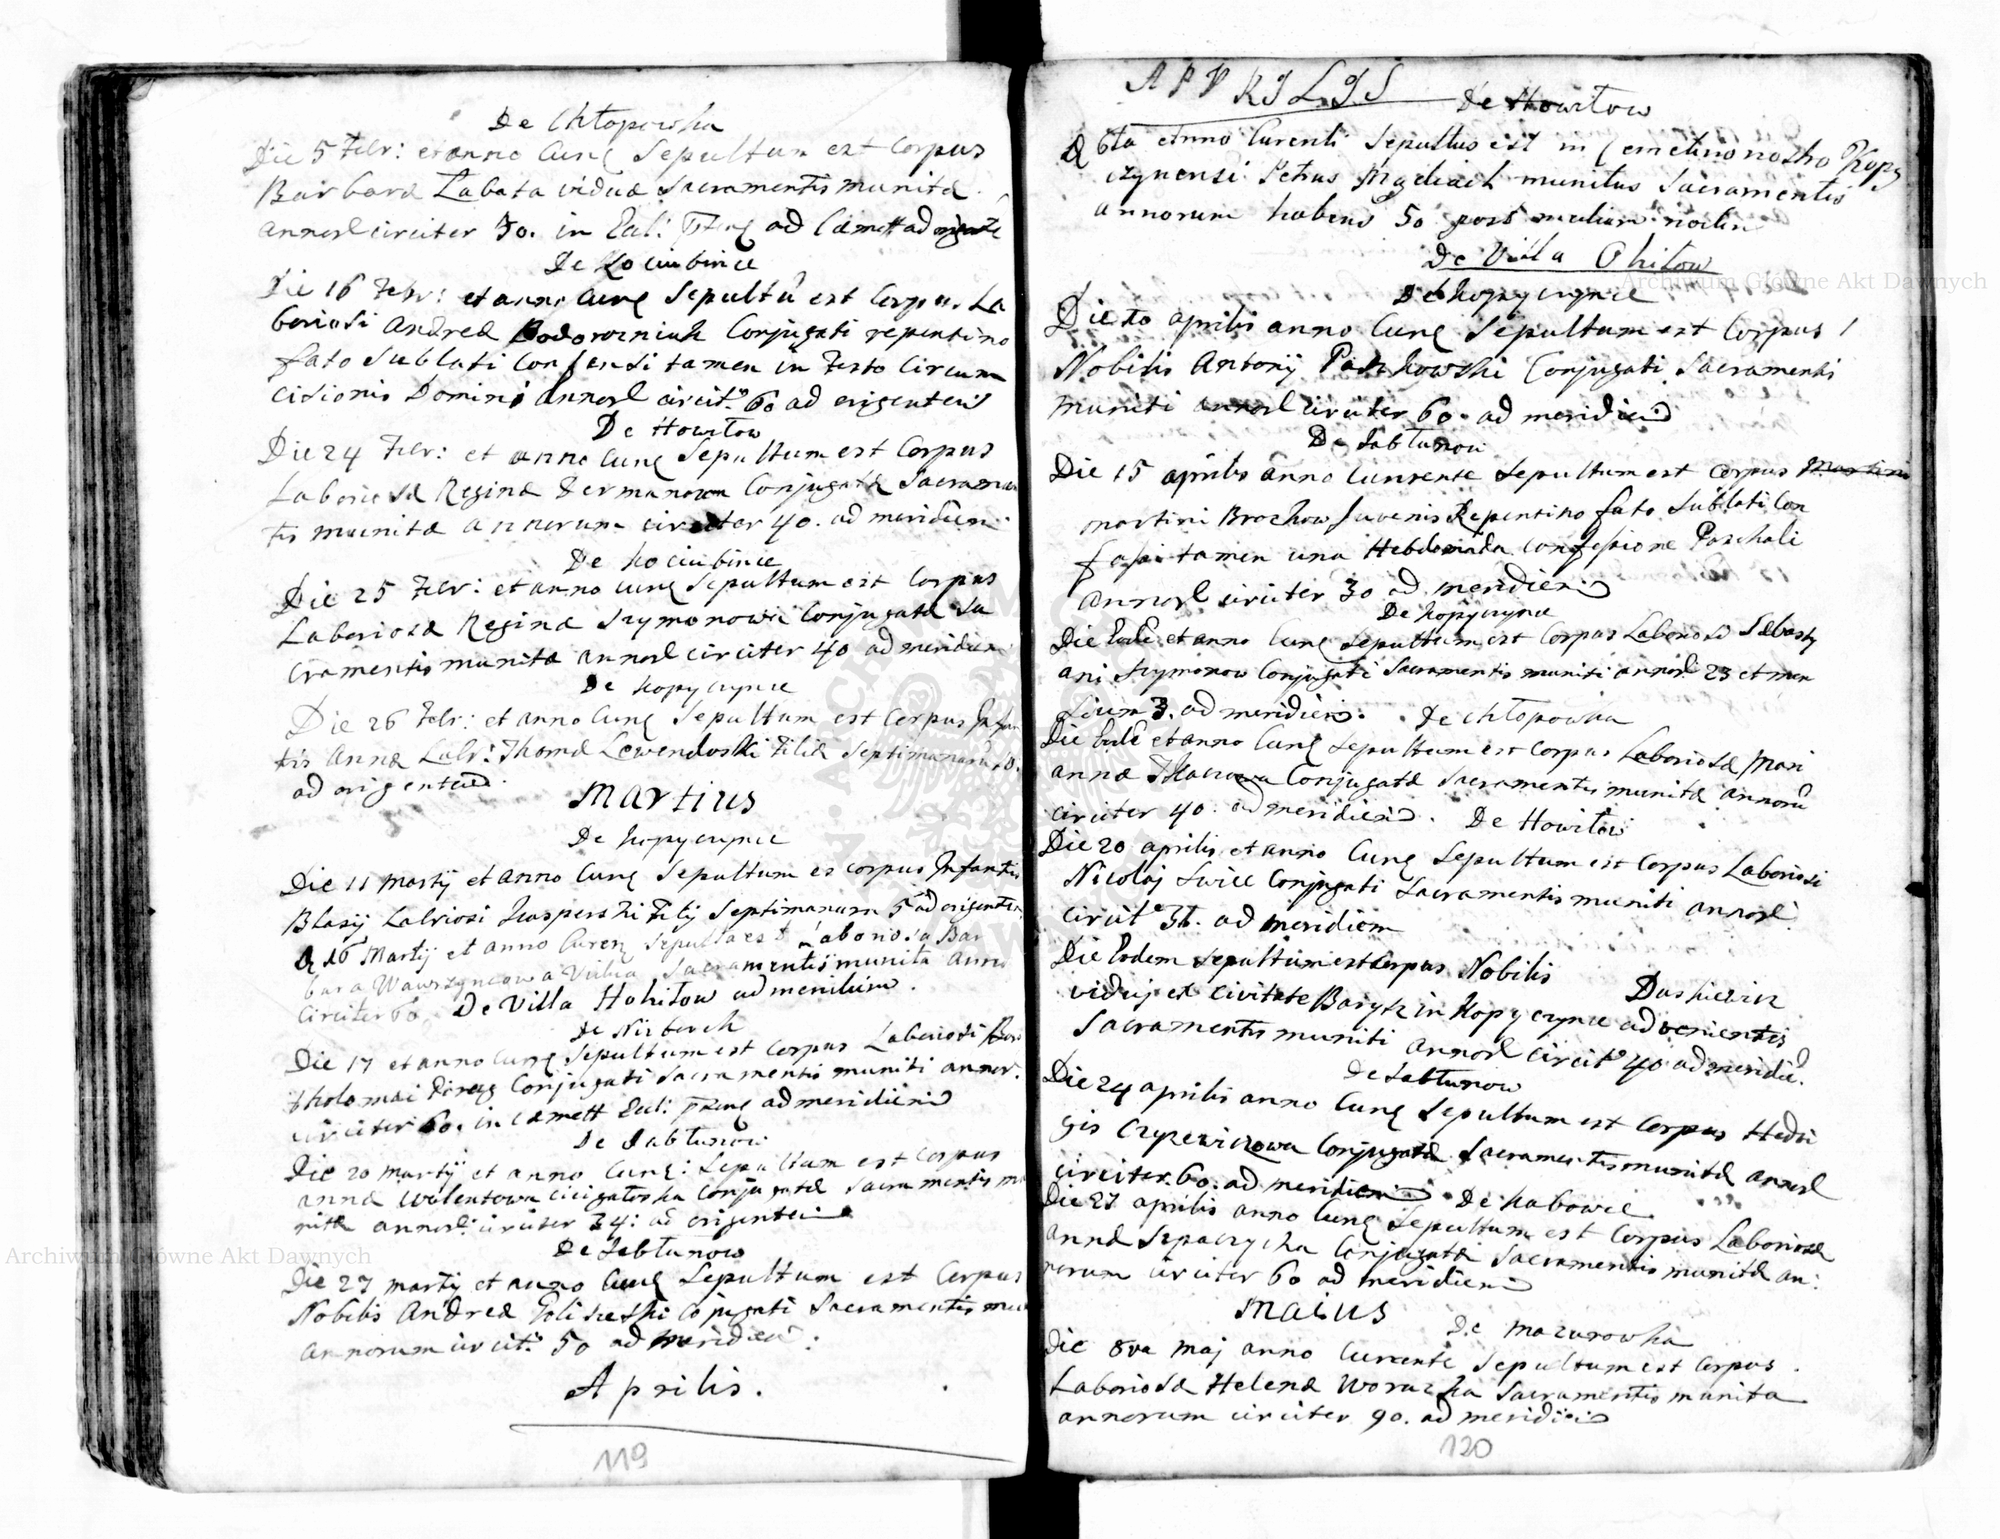 De Chłopowka
Die 5 Febr: et anno Curng Sepultum est Corpus
Barbaræ Łabata viduæ Sacramentis munitæ
annorl circiter 30. in Eccl: ad Cæmett ad
De Kociubince
Die 16 Febr: et anno Curng Sepultũ est Corpus La
boriosi Andreæ Bodorozniuk Conjugati repentino
fato Sublati Confensi tamen in Festo Circum
cisionis Domini annorl circit: 60 ad origentem
De Howiłow
Die 24 Febr: et anno Curng Sepultum est Corpus
Laboriosæ Reginæ Fermanowa Conjugatæ Sacramen
tis munitæ annorum circiter 40. ad meridiem
De Kociubince
Die 25 Febr: et anno Curng Sepultum est Corpus
Laboriosæ Reginæ Szymonowa Conjugatæ Sa
cramentis munitæ annorl circiter 40 ad meridiem
De Kopyczynce
Die 26 Febr: et anno Curng Sepultum est Corpus Infan
tis Annæ Labr: Thomæ Lewendoski Filiæ Septimanarũ 10.
ad origentem
Martius
De Kopyczynce
Die 11 Martij et anno Curng Sepultum es corpus Infantis
Blasij Labriosi Kasperski Filij Septimanarum 5 ad origentem
D 16 Martij et anno Curen Sepulta est Laboriosa Bar
bara Wawrzyncowa Vidua Sacramentis munita anno
circiter 60 De Villa Hohiłow ad meridiem.
De Niżborch
Die 17 et anno Curng Sepultum est Corpus Laboriosi Bar
tholomæi Conjugati Sacramentis muniti annor.
circiter 60. in cæmett Eccl: ad meridiem
De Jabłunow
Die 20 Martij et anno Curng: Sepultum est Corpus
annæ Walentowa Conjugatæ Sacramentis mu
nitæ annorl: circiter 34: ad origentem
De Jabłunow
Die 27 martij et anno Curng Sepultum est Corpus
Nobilis Andreæ Goliszeski Cojugati Sacramentis mu
annorum circit: 50 ad meridiem.
Aprilis.
119
APVRILIS De Howiłow
D 6ta etnno Curenti Sepultus est in Cemetirio nostro Kopy
czynensi Petrus munitus Sacramentis
annorum habens 50 post
De Villa Ohiłow
De Kopyczynce
Die 10 aprilis anno Curng Sepultum est Corpus
Nobilis Antonij Paszkowski Conjugati Sacramentis
muniti annorl circiter 60. ad meridiem
De Jabłunow
Die 15 aprilis anno Currente Sepultum est Corpus Martini
martini Brozkow Juvenis Repentino fato Sublati Con
fassi tamen una Hebdomada confessione Paschali
annorl circiter 30 ad meridiem
De Kopyczynce
Die Eodẽ et anno Curng Sepultum est Corpus Laboriosi Sebasty
ani Szymonow Conjugati Sacramentis muniti annorl 23 et men
sium 3. ad meridiem. De Chłopowka
Die Eodẽ et anno Curng Sepultum est Corpus Laboriosæ Mari
annæ Tkaczowa Conjugatæ Sacramentis munitæ annorũ
circiter 40. ad meridiem. De Howiłow
Die 20 aprilis et anno Curng Sepultum est Corpus Laboriosi
Nicolaj Conjugati Sacramentis muniti annorl
circit 36. ad meridiem
Die Eodem Sepultum est Corpus Nobilis Daskiewicz
vidui ex civitate Barysz in Kopyczynce advenientis
Sacramentis muniti annorl circit 40 ad meridiẽ.
De Jabłunow
Die 24 aprilis anno Curng Sepultum est Corpus Hedvi
gis Czyzewiczowa Conjugatæ Sacramentis munitæ annorl
circiter 60. ad meridiem. De Kabowce
Die 27 aprilis anno Curng Sepultum est Corpus Laboriosæ
annæ Sepaczycha Conjugatæ Sacramentis munitæ an:
norum circiter 60 ad meridiem
Maius
De Mazurowka
Die 8va maj anno Curente Sepultum est Corpus
Laboriosæ Helenæ Woraczka Sacramentis munita
annorum circiter 90. ad meridiem
120
Archiwum Główne Akt Dawnych
Archiwum Główne Akt Dawnych